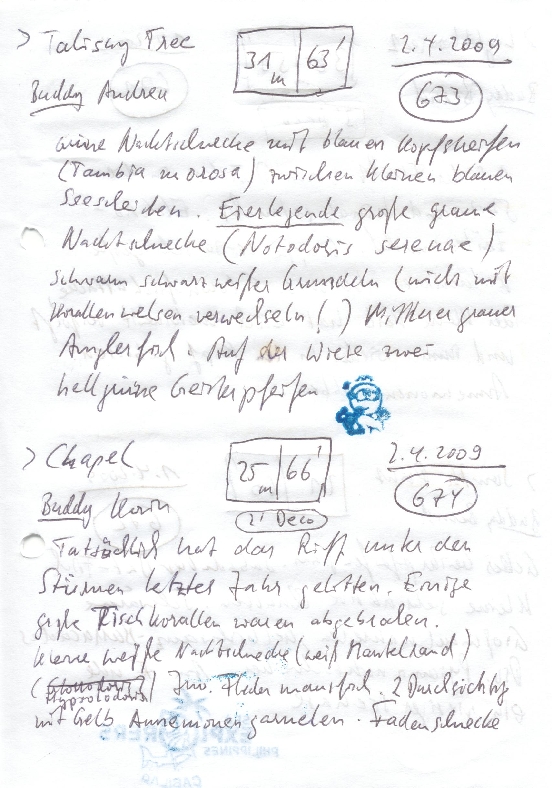 > Talisay Tree 31 m 63' 2.4.2009
Buddy Andrea 673
grüne Nacktschnecke mit blauen Kopfstreifen
(Tambia morosa) zwischen kleinen blauen
Seescheiden. Eierlegende große graue
Nacktschnecke (Notodoris serenae)
Schwarm schwarz weißer Grundeln (nicht mit
Korallenwelsen verwechseln!) Mittlerer grauer
Anglerfisch. Auf der Wiese zwei
hellgrüne Geisterpfeifen
> Chapel 25 m 66' 2.4.2009
Buddy 674
2' Deco
Tatsächlich hat das Riff unter den
Stürmen letztes Jahr gelitten. Einige
große Tischkorallen waren abgebrochen.
kleine weiße Nacktschnecke (weiß Mantelrand)
Juv. Fledermausfisch. 2 Durchsichtig
mit Gelb Annemonengarnelen. Fadenschnecke
EXPLORERS
PHILIPPINES
CABILAO